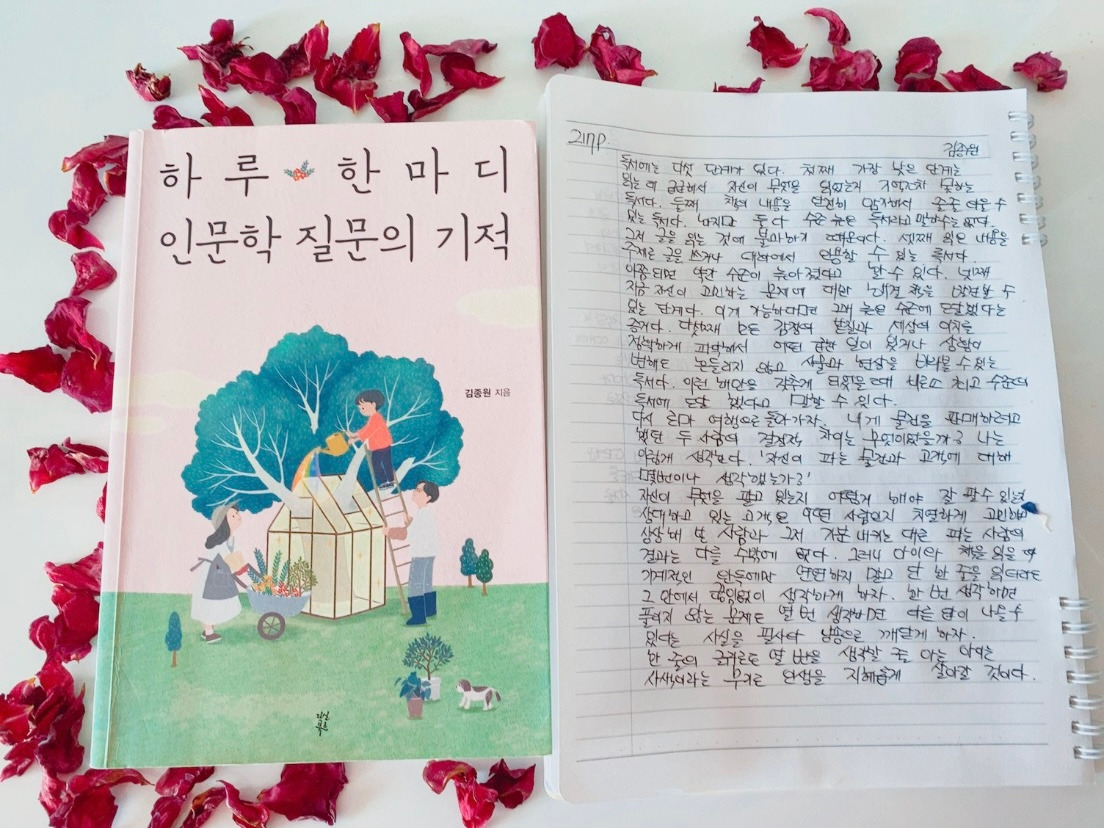 하루 한마디
인문학 질문의 기적
김종원 지음
217p.
김종원
독서에는 다섯 단계가 있다. 첫째 가장 낮은 단계는
읽는 데 급급해서 자신이 무엇을 읽었는지 기억조차 못하는
독서다. 둘째 책의 내용을 완전히 암기해서 줄줄 외울 수
있는 독서다. 하지만 둘 다 수준 높은 독서라고 말할 수는 없다.
그저 글을 읽는 것에 불과하기 때문이다. 셋째 읽은 내용을
주제로 글을 쓰거나 대화에서 인용할 수 있는 독서다.
이쯤 되면 약간 수준이 높아졌다고 할 수 있다. 넷째
지금 자신이 고민하는 문제에 대한 해결책을 발견할 수
있는 단계다. 이게 가능하다면 꽤 높은 수준에 도달했다는
증거다. 다섯째 모든 감정의 본질과 세상의 이치를
정확하게 파악해서 어떤 급한 일이 있거나 상황이
변해도 흔들리지 않고 사물과 현상을 바라볼 수 있는
독서다. 이런 혜안을 갖추게 되었을 때 비로소 최고 수준의
독서에 도달했다고 말할 수 있다.
다시 로마 여행으로 돌아가자. 내게 물건을 판매하려고
했던 두 사람의 결정적 차이는 무엇이었을까? 나는
이렇게 생각한다. '자신이 파는 물건과 고객에 대해
몇 번이나 생각했는가?'
자신이 무엇을 팔고 있는지 어떻게 해야 잘 팔 수 있는지
상대하고 있는 고객은 어떤 사람인지 치열하게 고민하고
상상해 본 사람과 그저 기분 내키는 대로 파는 사람의
결과는 다를 수밖에 없다. 그러니 아이와 책을 읽을 때
기계적인 완독에만 연연하지 말고 단 한 줄을 읽더라도
그 안에서 끊임없이 생각하게 하자. 한 번 생각하면
풀리지 않는 문제도 열 번 생각하면 다른 답이 나올 수
있다는 사실을 필사와 낭송으로 깨닫게 하자.
한 줄의 글귀로도 열 번을 생각할 줄 아는 아이는
사색이라는 무기로 인생을 지혜롭게 살아갈 것이다.